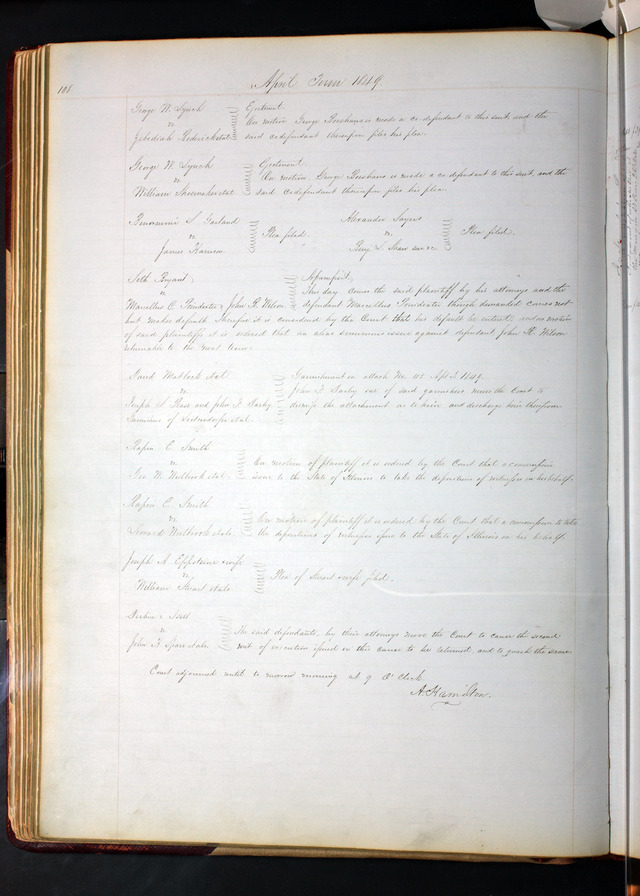 108
April Term 1849.
George W. Lynch
vs
Jedediah Roderick et al
Ejectment.
On motion George Boushanan is made a co defendant to this suit, and the
said codefendant thereupon files his plea.
George W. Lynch
vs
William Shoemaker et al
Ejectment.
On motion George Boushans is made a co defendant to this suit, and the
said codefendant thereupon files his plea.
S. Garland
vs
James Harrison
Plea filed.
Alexander Sayers
vs
Benj. L. Shaw
Plea filed.
Seth Bryant
vs
Marcellus C. Poindexter & John H. Wilson
Assumpsit.
This day comes the said plaintiff by his attorneys and the
defendant Marcellus Poindexter though demanded comes not
but makes default. Therefore it is considered by the Court that his default be entered and on motion
of said plaintiffs it is ordered that an alias summons issue against defendant John H. Wilson
returnable to the next term.
David Matlock et al
vs
Joseph S. Pease and John F. Darby
Garnishees of et al.
Garnishment on attach. No. Apl. T. 1849.
John F. Darby one of said garnishees moves the Court to
dismiss the attachment as to him and discharge him therefrom
C. Smith
vs
Geo W. Wilbrook et al
On motion of plaintiff it is ordered by the Court that a commission
issue to the State of Illinois to take the deposition of witnesses on his behalf.
C. Smith
vs
Leonard Wilbrook et als
On motion of plaintiff it is ordered by the Court that a commission to take
the depositions of witnesses issue to the State of Illinois on his behalf.
Joseph A. Eppstein & wife
vs
William Stuart et als
Plea of Stuart & wife filed.
&
vs
John F. et als.
The said defendants, by their attorneys move the Court to cause the second
writ of execution issued in this cause to be returned, and to quash the same
Court adjourned until to morrow morning at 9 O'Clock.
A. Hamilton.